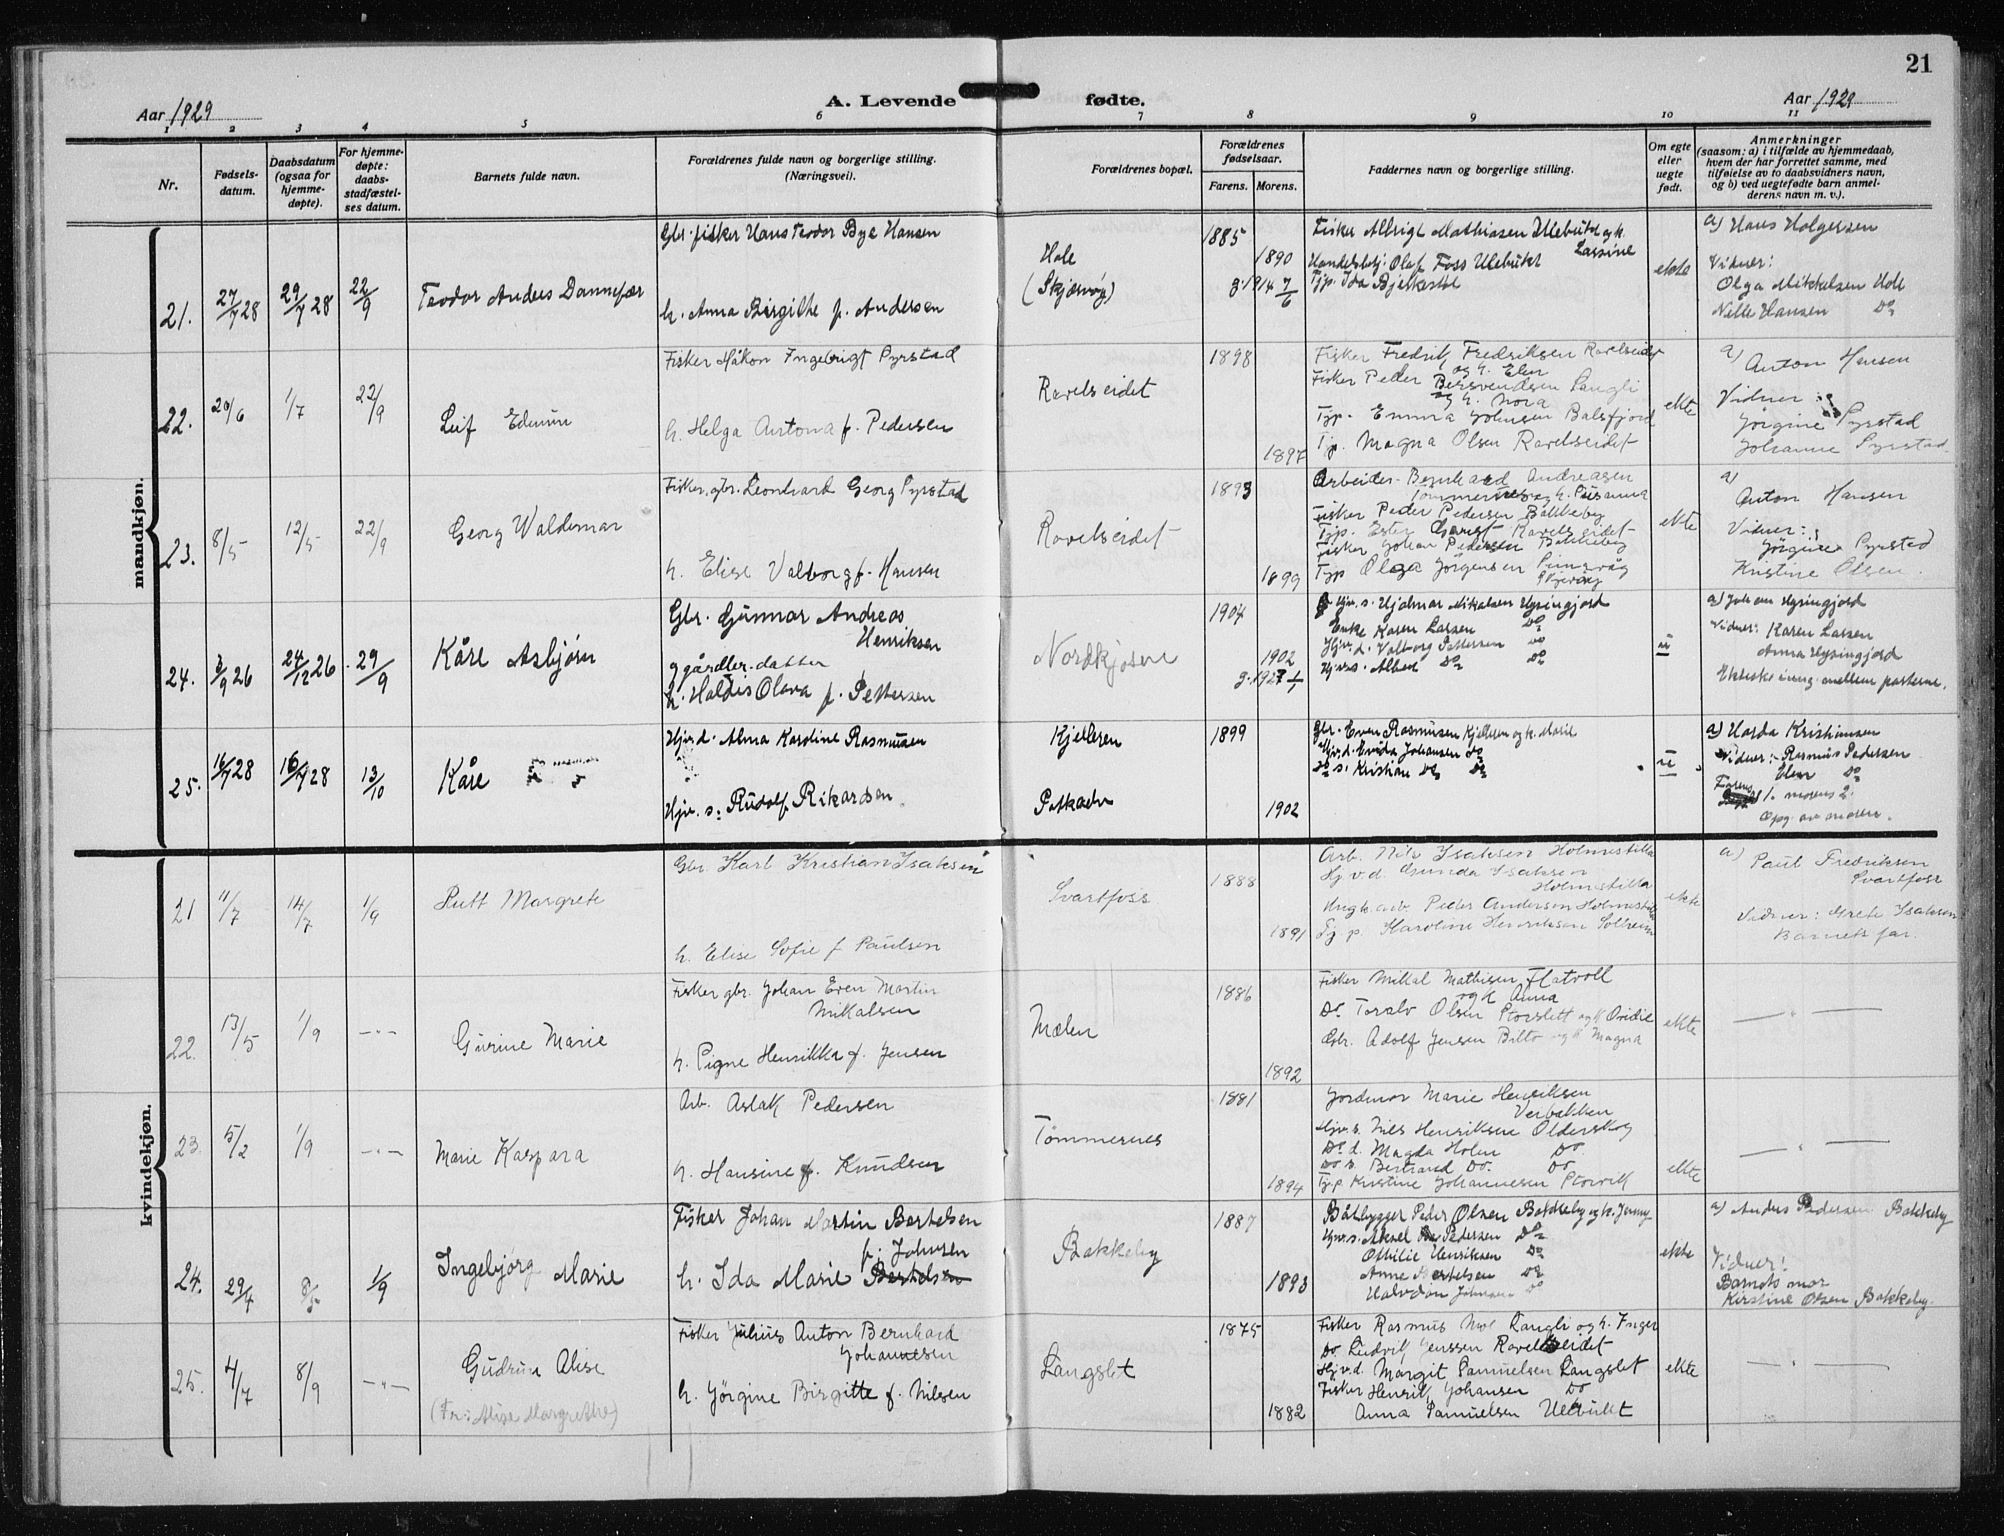 21
Aar 1929
A. Levende fødte.
Aar 1929
1 2 3 4 5 6 7 8 9 10 11
Nr.
Fødsels-
datum.
Daabsdatum
(ogsaa for
hjemme-
døpte).
For hjemme-
døpte:
daabs-
stadfæstel-
ses datum.
Barnets fulde navn.
Forældrenes fulde navn og borgerlige stilling.
(Næringsvei).
Forældrenes bopæl.
Forældrenes
fødselsaar.
Farens. Morens.
Faddernes navn og borgerlige stilling.
Om egte
eller
uegte
født.
Anmerkninger
(saasom: a) i tilfælde av hjemmedaab,
hvem der har forrettet samme, med
tilføielse av to daabsvidners navn,
og b) ved uegtefødte barn anmel-
derens navn m. v.).
mandkjøn.
21. 27/7 28 29/7 28 22/9
Teodor Anders Dannefær
Gbr. fisker Hans Teodor Bye Hansen
h. Anna Birgithe f. Andersen
Hole
(Skjærvøy)
1885
1890
g. 1914 7/6
Fisker Albrigt Mathiasen Ulebukt og h.
Lassine
Handelsbetj. Olaf Foss Ulebukt
Tjp. Ida Bjerkestol
ekte
a) Hans Holgersen
Vidner:
Olga Mikkelsen Hole
Nelle Hansen Do
22. 20/6 1/7 22/9
Leif Edmun
Fisker Håkon Ingebrigt Pyrstad
h. Helga Antona f. Pedersen
Ravelseidet
1898
1897
Fisker Fredrik Fredriksen Ravelseidet
og h. Elen
Fisker Peder Bersvendsen Langli
og h. Nora
Tjp. Emma Johnsen Balsfjord
Tj. Magna Olsen Ravelseidet
ekte
a)
Anton Hansen
Vidner:
Jörgine Pyrstad
Johanne Pyrstad
23. 8/5 12/5 22/9
Georg Waldemar
Fisker, gbr. Leonhard Georg Pyrstad
h. Elise Valborg f. Hansen
Ravelseidet
1893
1899
Arbeider Bernhard Andreasen
Tømmernes og h. Susanna
Fisker Peder Pedersen Bakkeby
Tjp. Ester Ravelseidet
Fisker Johan Pedersen Bakkeby
Tjp Olga Jörgensen
Skjervøy
ekte
a)
Anton Hansen
Vidner:
Jörgine Pyrstad
Kristine Olsen.
24. 3/9 26 24/12 26 29/9
Kåre Asbjørn
Gbr. Gunnar Andreas
Henriksen
g gårdbr. datter
h. Haldis Olava f. Pettersen
Nordkjosen
1904
1902
g. 1927 1/1
Hjv. s. Hjalmar Mikalsen Hysingjord
Enke Karen Larsen Do
Hjv. d. Valborg Pettersen Do
Hjv. s. Albert Do Do
u
a) Johan Hysingjord
Vidner: Karen Larsen
Anna Hysingjord
Ekteske inng. mellem parterne.
25. 16/7 28 16/7 28 13/10
Kåre
Hjv. d. Alma Karoline Rasmussen
Hjv. s: Rudolf Rikardsen.
Kjelleren
1899
1902
Gbr. Even Rasmussen Kjelleren og h. Marie
Hjv. d. Evida Johansen Do
Do s. Kristian Do Do
u
a) Harda Kristiansen
Vidner: Rasmus Pedersen
Elen Do
Farens 1. morens 2.
Opg. av moren.
kvindekjøn.
21 11/7 14/7 1/9
Rutt Margrete
Gbr. Karl Kristian Isaksen
h. Elise Sofie f. Paulsen
Svartfoss
1888
1891
Arb. Nils Isaksen Holmestilla
Hjv. d. Gunda Isaksen
Holmestilla
Ungk. arb. Peder Andersen Holmestilla
Tjp. Karoline Henriksen Solheim
ekte
a)
Paul Fredriksen
Svartfoss
Vidner: Grete Isaksen
Barnets far.
22. 13/5 1/9 -"-
Gurine Marie
Fisker gbr. Johan Even Martin
Mikalsen
h. Signe Henrikka f. Jensen
Mælen
1886
1892
Fisker Mikal Mathisen Flatvoll
og h. Anna
Do. Toralv Olsen Storslett og h. Ovidie
Gbr. Adolf Jensen Bilto og h. Magna
ekte
— " —
23. 5/2 1/9 -"-
Marie Kaspara
Arb. Aslak Pedersen
h. Hansine f. Knudsen
Tømmernes
1881
1894
Jordmor Marie Henriksen
Verbakken
Hjv. s. Nils Henriksen Olderskog
Do. d. Magda Holm Do.
Do. s. Bertrand Do. Do
Tjp Kristine Johannesen Storvik
ekte
— " —
24. 29/4 8/5 1/9
Ingebjørg Marie
Fisker Johan Martin Bertelsen
f. Johnsen
h. Ida Marie Bertelsen
Bakkeby
1887
1893
Båtbygger Peder Olsen Bakkeby og h. Jenny
Hjv. s. Aksel Pedersen Do
Othilie Henriksen Do
Anne Bertelsen Do
Halvdan Johnsen Do
ekte
a) Anders Pedersen Bakkeby
Vidner:
Barnets mor
Kirstine Olsen Bakkeby.
25. 4/7 8/9 -"-
Gudrun Alise
(Fr: Alise Margrethe)
Fisker Julius Anton Bernhard
Johannesen
h. Jörgine Birgitte f. Nilsen
Langslet
1875
1882
Fisker Rasmus Moe Langli og h. Inger
Do Ludvik Jenssen Ravelseidet
Hjv. d. Margit Samuelsen Langslet
Fisker Henrik Johansen Do
Anna Samuelsen Ulebukt
ekte
— " —